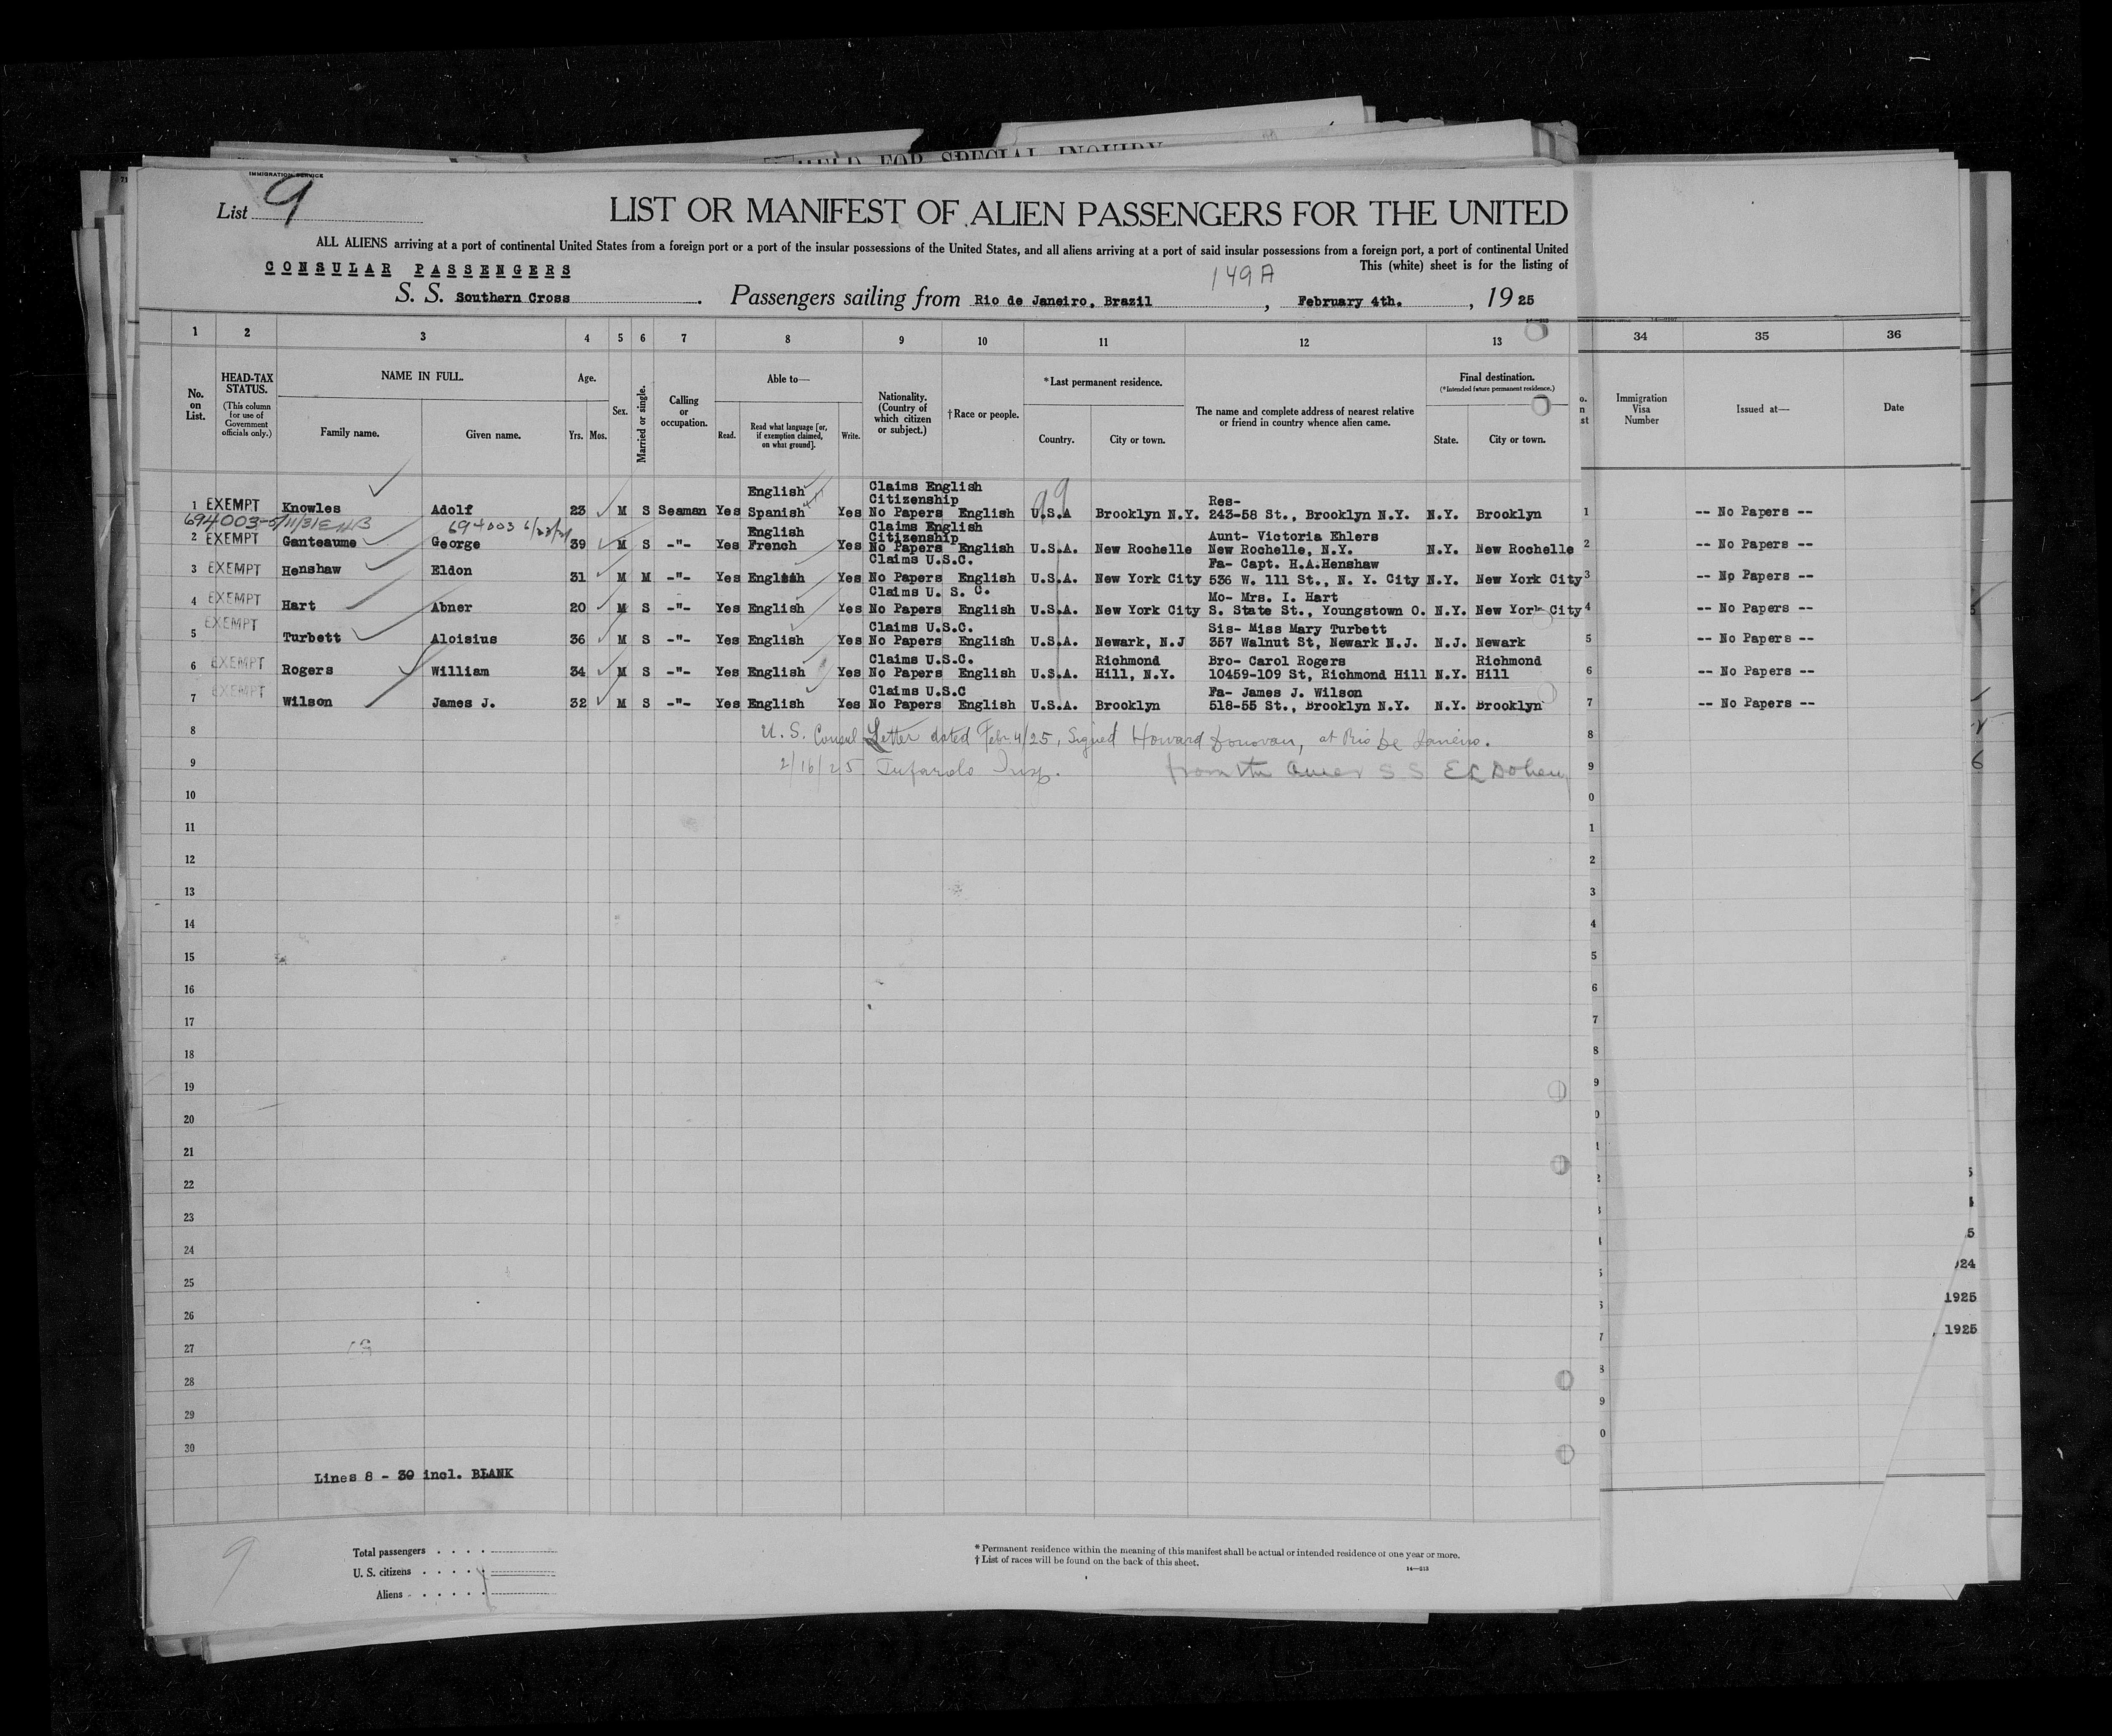 HELD FOR SPECIAL INQUIRY
IMMIGRATION SERVICE
List 9
LIST OR MANIFEST OF ALIEN PASSENGERS FOR THE UNITED
ALL ALIENS arriving at a port of continental United States from a foreign port or a port of the insular possessions of the United States, and all aliens arriving at a port of said insular possessions from a foreign port, a port of continental United
CONSULAR PASSENGERS
This (white) sheet is for the listing of
149A
S. S. Southern Cross. Passengers sailing from Rio de Janeiro, Brazil, February 4th., 1925
1 2 3 4 5 6 7 8 9 10 11 12 13 34 35 36
No. on List.
HEAD-TAX STATUS. (This column for use of Government officials only.)
NAME IN FULL.
Family name. Given name.
Age.
Yrs. Mos.
Sex.
Married or single.
Calling or occupation.
Able to—
Read. Read what language [or, if exemption claimed, on what ground]. Write.
Nationality. (Country of which citizen or subject.)
†Race or people.
*Last permanent residence.
Country. City or town.
The name and complete address of nearest relative or friend in country whence alien came.
Final destination.
(*Intended future permanent residence.)
State. City or town.
Immigration Visa Number
Issued at—
Date
1 EXEMPT Knowles Adolf 23 M S Seaman Yes English Spanish Yes Claims English Citizenship No Papers English U.S.A Brooklyn N.Y. Res- 243-58 St., Brooklyn N.Y. N.Y. Brooklyn 1 -- No Papers --
694003-5/11/31 694003
2 EXEMPT Ganteaume George 39 M S -"- Yes English French Yes Claims English Citizenship No Papers English U.S.A. New Rochelle Aunt- Victoria Ehlers New Rochelle, N.Y. N.Y. New Rochelle 2 -- No Papers --
3 EXEMPT Henshaw Eldon 31 M M -"- Yes English Yes Claims U.S.C. No Papers English U.S.A. New York City Fa- Capt. H.A.Henshaw 536 W. 111 St., N. Y. City N.Y. New York City 3 -- No Papers --
4 EXEMPT Hart Abner 20 M S -"- Yes English Yes Claims U. S. C. No Papers English U.S.A. New York City Mo- Mrs. I. Hart S. State St., Youngstown O. N.Y. New York City 4 -- No Papers --
5 EXEMPT Turbett Aloisius 36 M S -"- Yes English Yes Claims U.S.C. No Papers English U.S.A. Newark, N.J Sis- Miss Mary Turbett 357 Walnut St, Newark N.J. N.J. Newark 5 -- No Papers --
6 EXEMPT Rogers William 34 M S -"- Yes English Yes Claims U.S.C. No Papers English U.S.A. Richmond Hill, N.Y. Bro- Carol Rogers 10459-109 St, Richmond Hill N.Y. Richmond Hill 6 -- No Papers --
7 EXEMPT Wilson James J. 32 M S -"- Yes English Yes Claims U.S.C No Papers English U.S.A. Brooklyn Fa- James J. Wilson 518-55 St., Brooklyn N.Y. N.Y. Brooklyn 7 -- No Papers --
8 U. S. Consul Letter dated Feb 4/25, Signed Howard Donovan, at Rio de Janeiro. 8
9 2/16/25 Insp. from the Amer S S E L Doheny 9
10
11
12
13
14
15
16
17
18
19
20
21
22
23
24
25
26
27
28
29
30
1925
, 1925
Lines 8 - 30 incl. BLANK
9
Total passengers
U. S. citizens
Aliens
* Permanent residence within the meaning of this manifest shall be actual or intended residence of one year or more.
† List of races will be found on the back of this sheet.
14—513